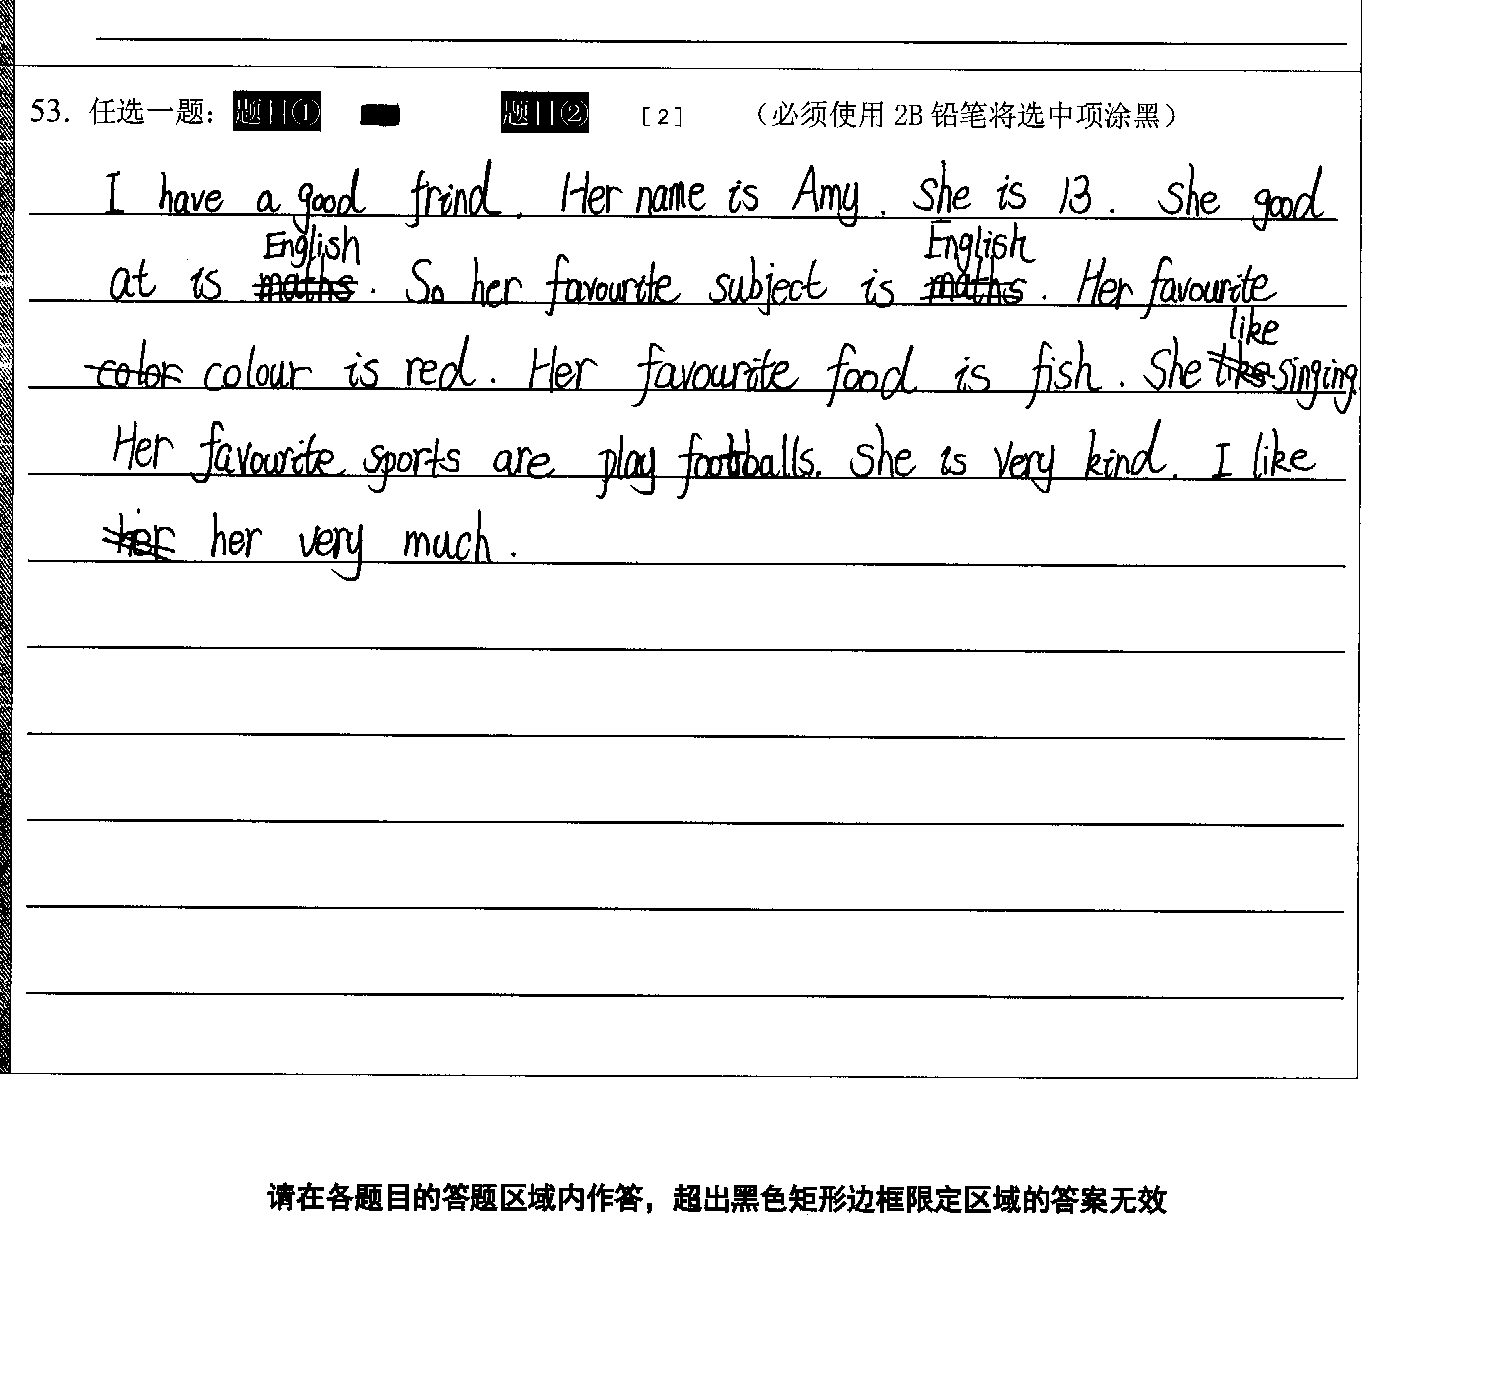 53. 任选一题: 题目① 题目② [2] (必须使用 2B 铅笔将选中项涂黑)
I have a good frind. Her name is Amy. She is 13. She good
at is English. So her favourite subject is English. Her favourite
color colour is red. Her favourite food is fish. She like singing.
Her favourite sports are play footballs. She is very kind. I like
her very much.
请在各题目的答题区域内作答，超出黑色矩形边框限定区域的答案无效